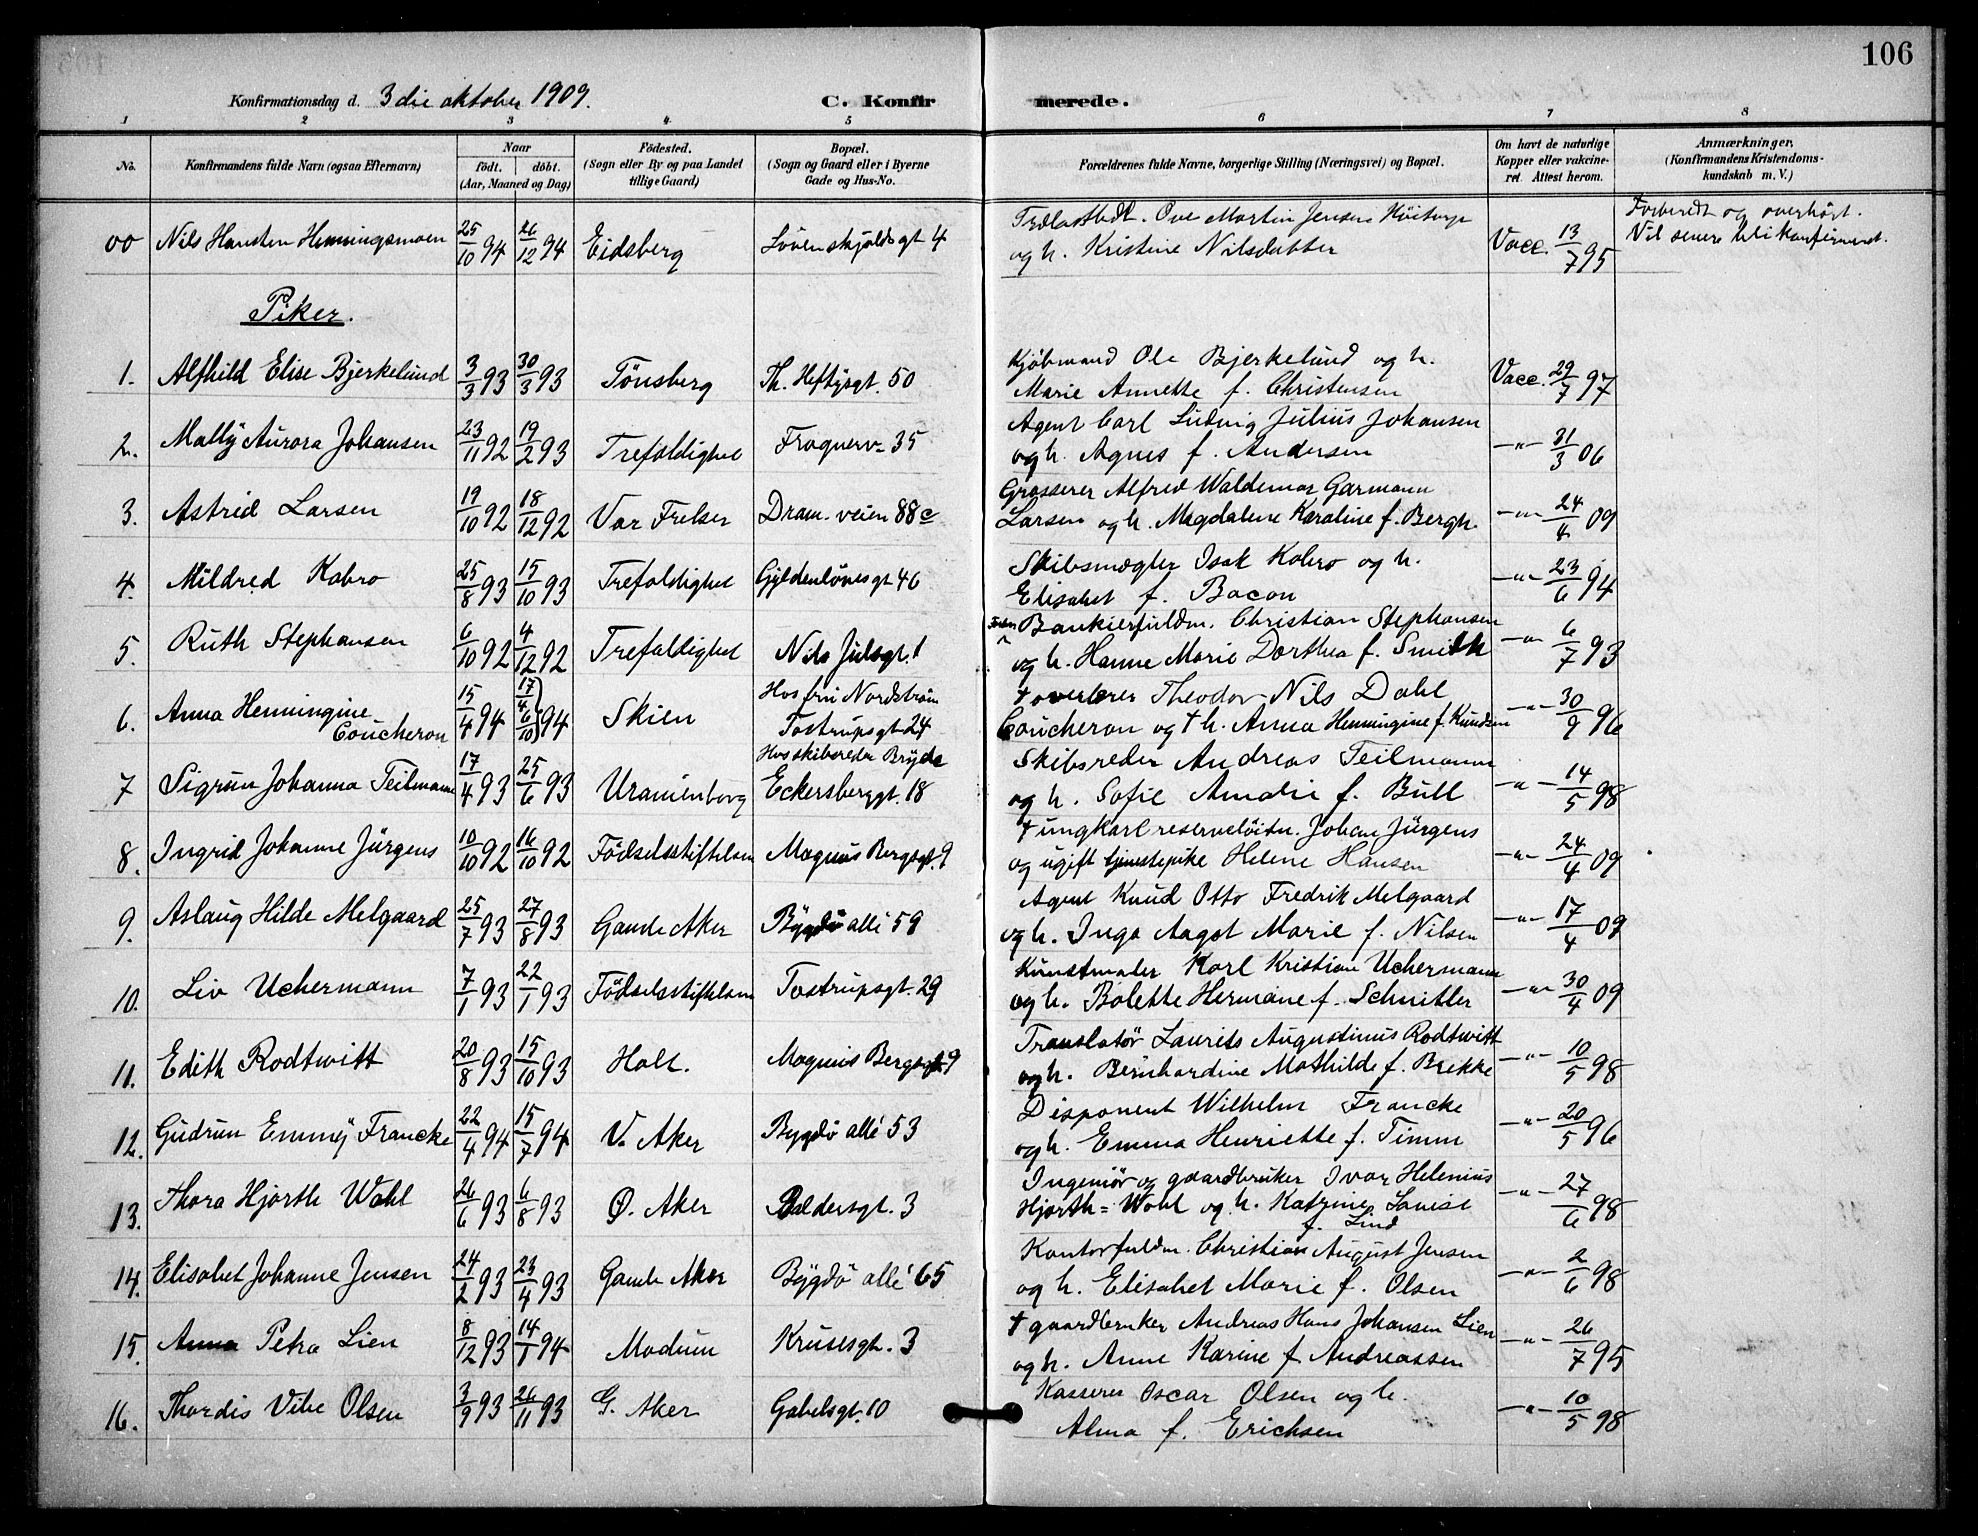 106
Konfirmationsdag d. 3die oktober 1909. C. Konfirmerede.
1 2 3 4 5 6 7 8
No. Konfirmandens fulde Navn (ogsaa Efternavn) Naar födt. döbt. (Aar, Maaned og Dag) Födested. (Sogn eller By og paa Landet tillige Gaard) Bopæl. (Sogn og Gaard eller i Byerne Gade og Hus-No. Forældrenes fulde Navne, borgerlige Stilling (Næringsvei) og Bopæl. Om havt de naturlige Kopper eller vakcineret. Attest herom. Anmærkninger. (Konfirmandens Kristendomskundskab m. V.)
00 Nils Hansten Henningsmoen 25/10 94 26/12 94 Eidsberg Lövenskjoldsgt 4 Ove Martin Jensen og h. Kristine Nilsdatter Vacc. 13/7 95 Forberedt og overhört. Vil senere bli konfirmeret.
Piker.
1. Alfhild Elise Bjerkelund 3/3 93 30/3 93 Tönsberg Th. Heftysgt. 50 Kjöbmand Ole Bjerkelund og h. Marie Annette f. Christensen Vacc. 29/7 97
2. Mally Aurora Johansen 23/11 92 19/2 93 Trefoldighet Frognerv. 35 Agent Carl Ludvig Julius Johansen og h. Agnes f. Andersen -"- 31/3 06
3. Astrid Larsen 19/10 92 18/12 92 Vor Frelser Dram. veien 88c Grosserer Alfred Waldemar Garmann Larsen og h. Magdalene Karoline f. Bergh. -"- 24/4 09
4. Mildred Kobro 25/8 93 15/10 93 Trefoldighet Gyldenlövesgt 46 Skibsmægler Isak Kobro og h. Elisabet f. Bacon -"- 23/6 94
5. Ruth Stephansen 6/10 92 4/12 92 Trefoldighet Nils Julsgt. 1 Bankierfuldm. Christian Stephansen og h. Hanne Marie Dorthea f. Smith -"- 6/7 93
6. Anna Henningine Coucheron 15/4 94 17/4 6/10 94 Skien Hos fru Nordström Tostrupsgt. 24 † overlærer Theodor Nils Dahl Coucheron og † h. Anna Henningine f. Knudsen -"- 30/9 96
7 Sigrun Johanna Teilmann 17/4 93 25/6 93 Uranienborg Hos skibsreder Bryde Eckersbergt. 18 Skibsreder Andreas Teilmann og h. Sofie Amalie f. Bull -"- 14/5 98
8. Ingrid Johanne Jürgens 10/10 92 16/10 92 Födselsstiftelsen Magnus Bergsgt. 9 † ungkarl reservelöitn. Johan Jürgens og ugift tjenestepike Helene Hansen -"- 24/4 09
9. Aslaug Hilde Melgaard 25/7 93 27/8 93 Gamle Aker Bygdö allé 59 Agent Knud Otto Fredrik Melgaard og h. Inga Aagot Marie f. Nilsen -"- 17/4 09
10. Liv Uchermann 7/1 93 22/1 93 Födselsstiftelsen Tostrupsgt. 29 Kunstmaler Karl Kristian Uchermann og h. Bolette Hermane f. Schnitler -"- 30/4 09
11. Edith Rodtwitt 20/8 93 15/10 93 Holt. Magnus Bergsgt 9 Translatör Laurits Augustinus Rodtwitt og h. Bernhardine Mathilde f. Brekke -"- 10/5 98
12. Gudrun Emmy Francke 22/4 94 15/7 94 V. Aker Bygdö allé 53 Disponent Wilhelm Francke og h. Emma Henriette f. Timm -"- 20/5 96
13. Thora Hjorth Wahl 26/6 93 6/8 93 Ö. Aker Baldersgt. 3 Ingeniör og gaardbruker Ivar Helenius Hjorth=Wahl og h. Katrine Lovise f. Lind -"- 27/6 98
14. Elisabet Johanne Jensen 24/2 93 23/4 93 Gamle Aker Bygdö allé 65 Kontorfuldm. Christian August Jensen og h. Elisabet Marie f. Olsen -"- 2/6 98
15. Anna Petra Lien 8/12 93 14/1 94 Modum Krusesgt. 3 † gaardbruker Andreas Hans Johansen Lien og h. Anne Karine f. Andreassen -"- 26/7 95
16. Thordis Vibe Olsen 3/9 93 26/11 93 G. Aker Gabelsgt. 10 Kasserer Oscar Olsen og h. Alma f. Erichsen -"- 10/5 98